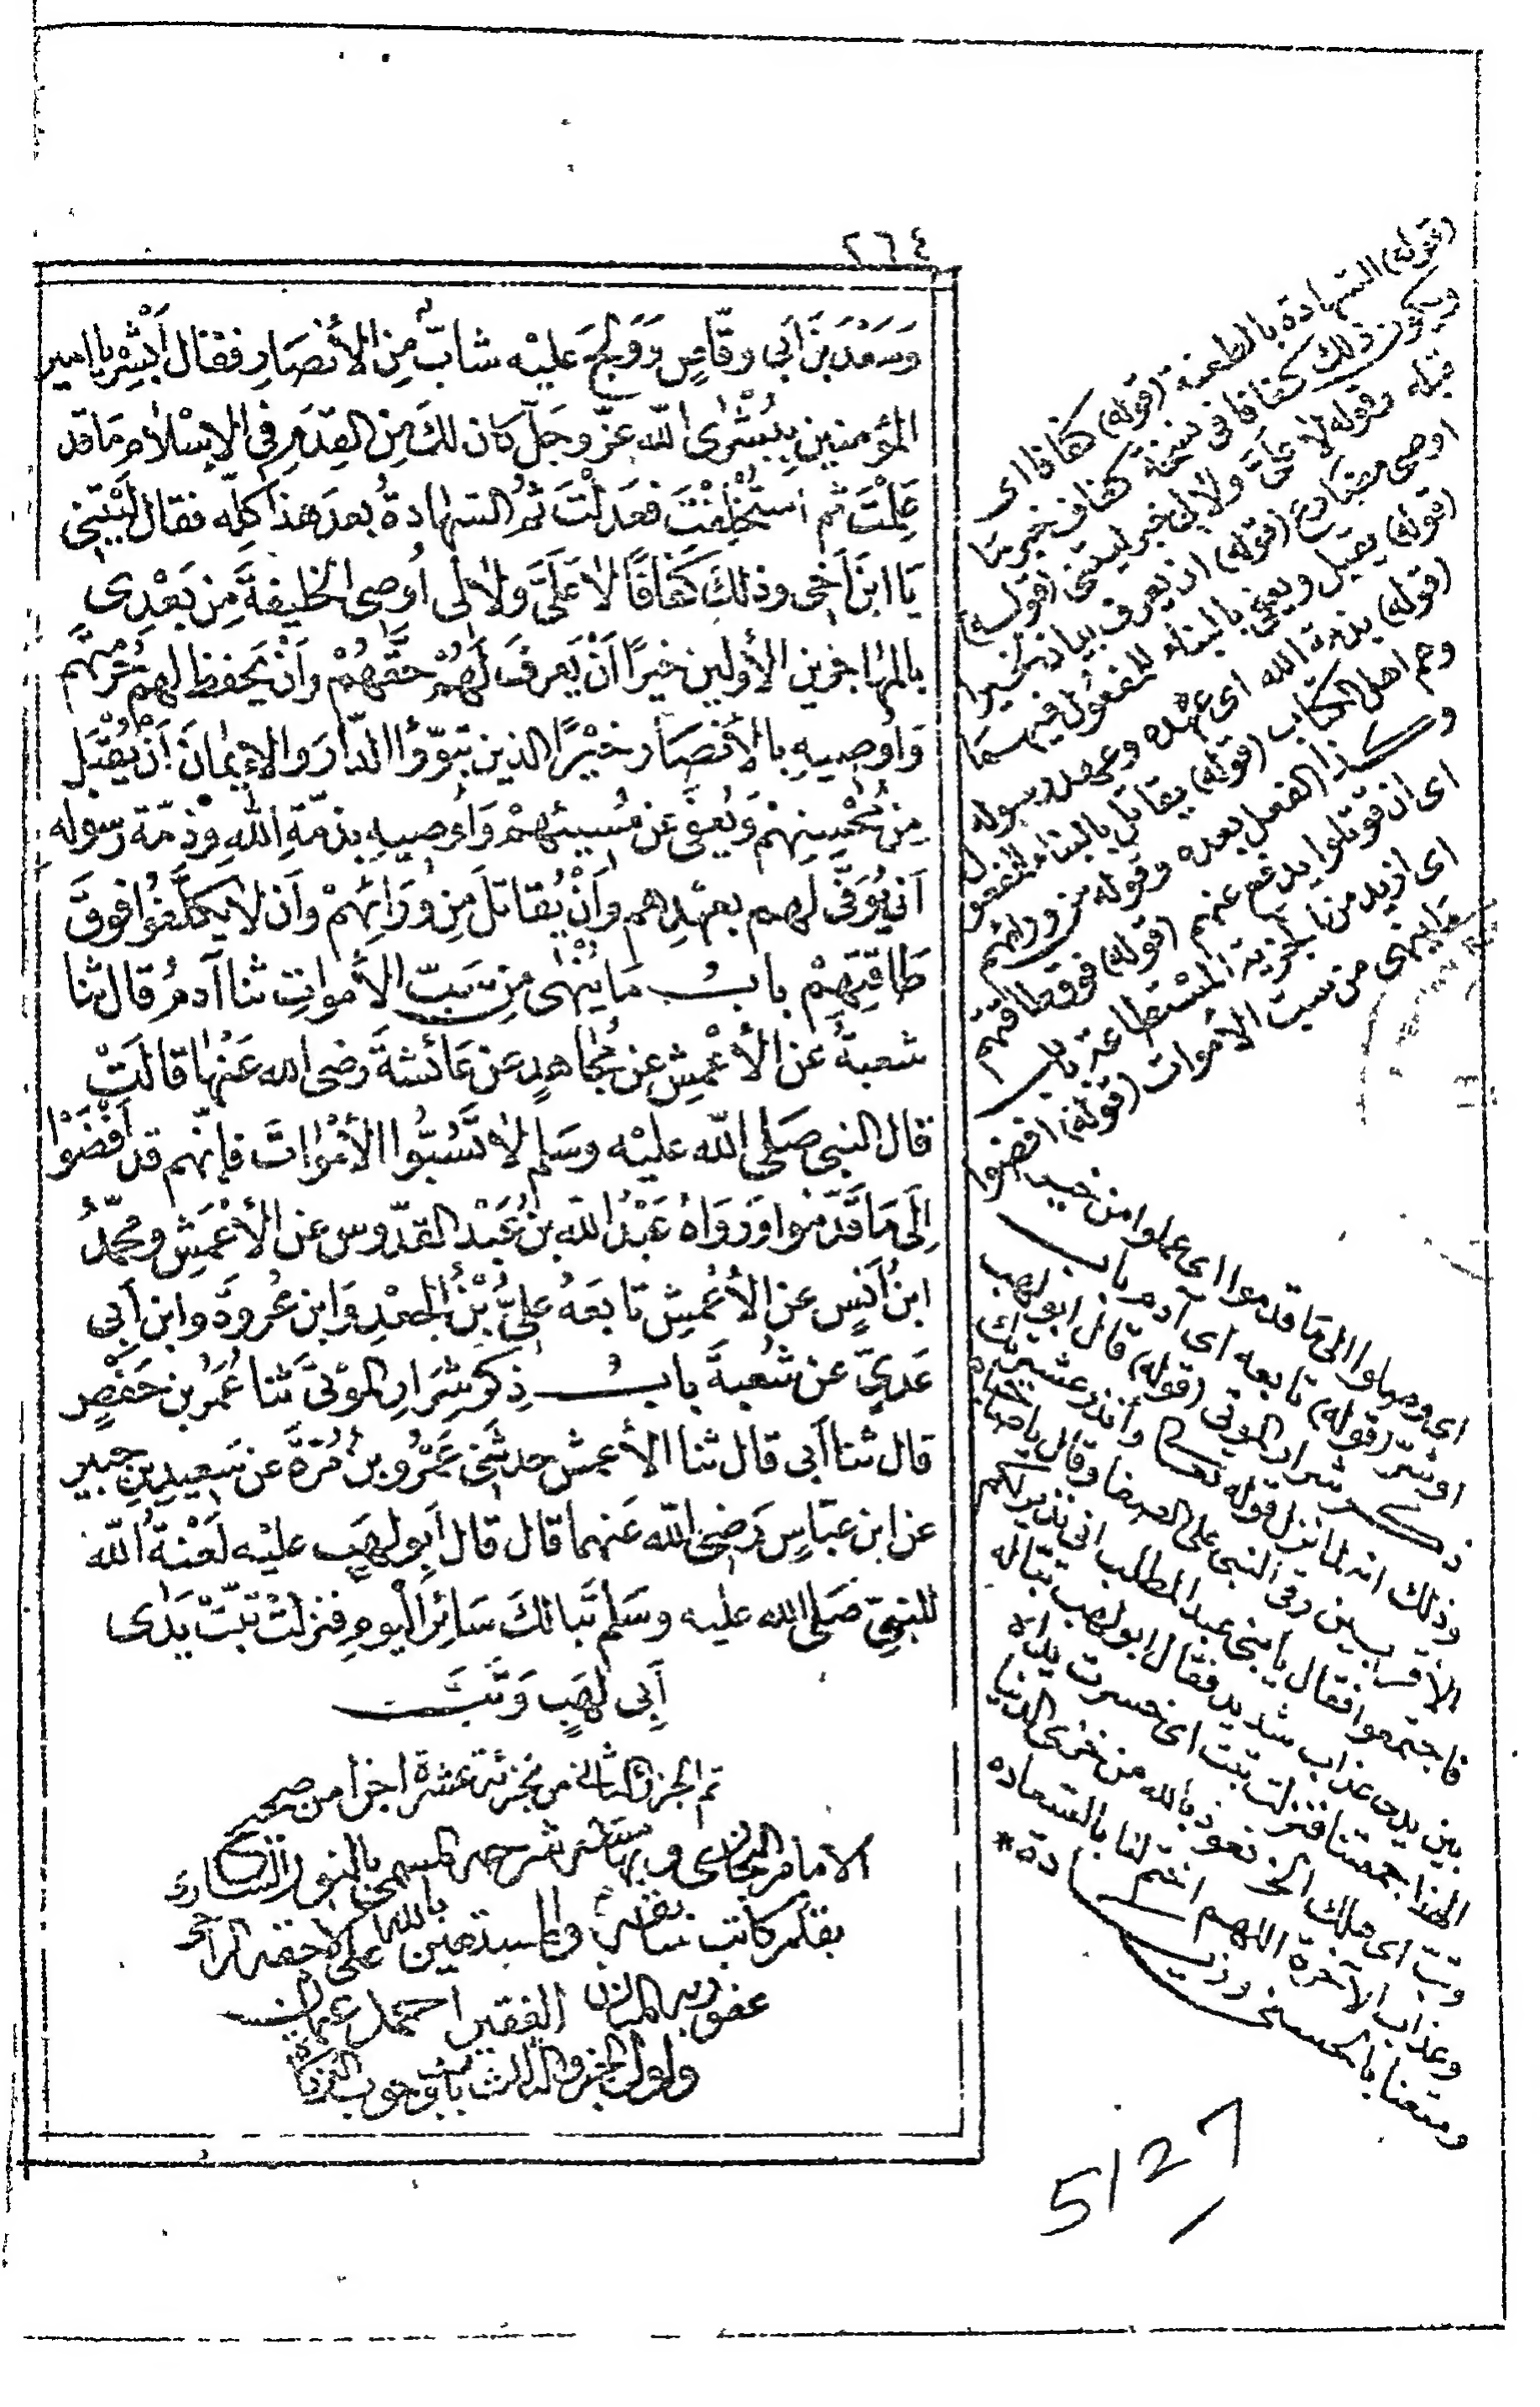 ٢٦٤
وَسَعْدَ بْنَ أَبِي وقَّاصٍ وَوَلَجَ عَلَيْه شابٌّ مِنَ الأَنْصَارِ فقال أَبْشِرْ يا امير
المؤمنين بِبُشْرَى اللهِ عَزَّ وجَلَّ كان لكَ مِنَ القِدَمِ فِى الإِسْلَامِ مَا قد
عَلِمْتَ ثم اسْتُخْلِفْتَ فعَدَلْتَ ثُمَّ الشهادةُ بعدَ هذا كلِّه فقال لَيْتَنِى
يَا ابنَ أَخِى وذلكَ كَفَافًا لَا عَلَىَّ ولَا لِى أُوصِى الخليفةَ مِن بَعْدِى
بالمُهَاجِرِينَ الأولين خيرًا أَنْ يَعرِفَ لَهُمْ حَقَّهُمْ وأَنْ يَحفظ لهم حُرْمَتَهُم
وَأُوصِيهِ بالأَنْصَارِ خَيْرًا الذين تَبَوَّؤُا الدّارَ والإِيمَانَ أَنْ يُقْبَلَ
مِن مُحْسِنِهِمْ وَيُعْفَى عن مُسِيئِهِمْ وَأُوصِيهِ بذمّةِ اللهِ وَذِمّة رَسُوله
أن يُوَفَّى لهم بعَهْدِهم وأَنْ يُقاتَلَ مِن وَرَائِهِمْ وأَن لا يُكَلَّفُوا فوقَ
طَاقَتِهِمْ بابُ مَا يُنْهَى مِن سَبِّ الأَمواتِ ثنا آدمُ قال ثنا
شعبةُ عن الأَعْمَشِ عن مُجَاهدٍ عن عَائشةَ رضى الله عَنْهَا قالَتْ
قال النبى صَلى الله عليْه وسَلم لَا تَسُبُّوا الأَمْوَاتَ فإنّهم قد أَفْضَوْا
إِلَى مَا قَدَّمُوا وَرَوَاهُ عَبْدُ الله بنُ عَبْد القدّوس عن الأَعْمَشِ ومُحمّدُ
ابنُ أَنَسٍ عن الأَعْمَشِ تابَعَهُ عَلِىُّ بْنُ الجعْدِ وَابن عُرْوَةَ وابن أَبِى
عَدِىٍّ عن شُعْبةَ بابُ ذِكْرِ شِرَارِ المَوْتَى ثنا عُمَرُ بن حَفْصٍ
قال ثنا أَبى قال ثنا الأَعمش حدثنى عَمْرُو بن مُرَّةَ عن سَعِيدِ بنِ جبير
عن ابن عبّاسٍ رَضِىَ اللهُ عَنهما قال قال أَبو لهَبٍ عليْه لَعْنةُ اللهِ
للنبِىِّ صَلى الله عليه وسَلم تَبّا لكَ سَائرَ اليَومِ فنزلتْ تَبّتْ يَدَى
أَبِى لَهَبٍ وَتَبَّ
تم الجزؤ الثانى من تجزئة عشرة اجزا من صحيح
الامام البخارى وبهامشه شرحه المسمى بالنور السارى
بقلم كاتب والمستعين بالله على الراجى
عفو ربه المنان الفقير احمد
واول الجزو الثالث باب وجوب الزكاة
(قوله) الشهادة بالطعنة (قوله) كفافا اى
ويكون ذلك كفافا فى نسخة كفاف خبر
قبله وقوله لا علىّ ولا لى خبر ليتنى (قوله)
اوصى مضارع (قوله) ان يعرف بيان لخيرا
(قوله) يقبل ويعفى بالبناء للمفعول فيهما
(قوله) بذمة الله اى عهده وعهد رسوله
وهم اهل الكتاب (قوله) يقاتل بالبناء للمفعول
وكذا الفعل بعده وقوله من ورائهم
اى ان قوتلوا يدفع عنهم (قوله) فوق طاقتهم
اى ازيد من الجزية المستطاعة باب
ما ينهى من سب الأموات (قوله) افضوا
اى وصلوا الى ما قدموا اى عملوا من خير
او شر (قوله) تابعه اى آدم باب
ذكر شرار الموتى (قوله) قال ابو لهب
وذلك انه لما نزل قوله تعالى وأنذر عشيرتك
الاقربين رقى النبى على الصفا وقال يا صباحاه
فاجتمعوا فقال يا بنى عبد المطلب انى نذير لكم
بين يدى عذاب شديد فقال ابو لهب تبّا له
الهذا جمعتنا فنزلت تبت اى خسرت يداه
وتب اى هلك الخ نعوذ بالله من خزى الدنيا
وعذاب الآخرة اللهم اختم لنا بالسعاده
ومتعنا بالحسنى وزيادة *
5127